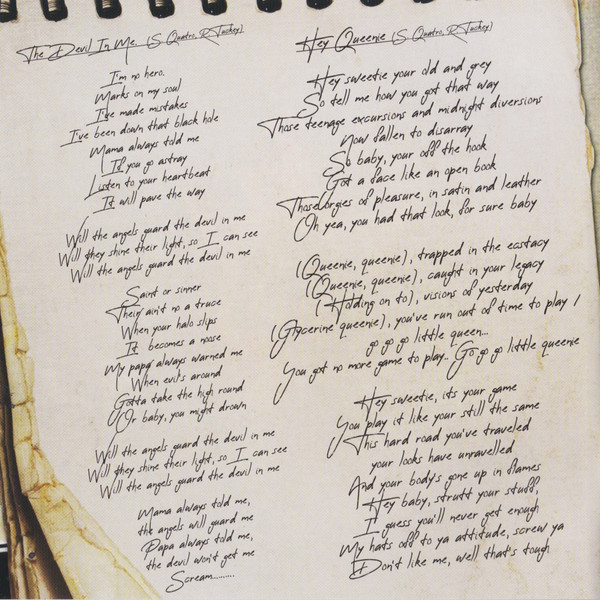 The Devil In Me. (S Quatro, R Tuckey)
I'm no hero.
Marks on my soul
I've made mistakes
I've been down that black hole
Mama always told me
If you go astray
Listen to your heartbeat
It will pave the way
Will the angels guard the devil in me
Will they shine their light, so I can see
Will the angels guard the devil in me
Saint or sinner
Their ain't no a truce
When your halo slips
It becomes a noose
My papa always warned me
When evil's around
Gotta take the high round
Or baby, you might drown
Will the angels guard the devil in me
Will they shine their light, so I can see
Will the angels guard the devil in me
Mama always told me,
the angels will guard me
Papa always told me,
the devil won't get me
Scream..........
Hey Queenie (S Quatro, R Tuckey)
Hey sweetie your old and grey
So tell me how you got that way
Those teenage excursions and midnight diversions
Now fallen to disarray
So baby, your off the hook
Got a face like an open book
Those orgies of pleasure, in satin and leather
Oh yea, you had that look, for sure baby
(Queenie, queenie), trapped in the ecstacy
(Queenie, queenie), caught in your legacy
(Holding on to), visions of yesterday
(Glycerine queenie), you've run out of time to play /
go go go little queen...
You got no more game to play.. Go go go little queenie
Hey sweetie, its your game
You play it like your still the same
This hard road you've traveled
your looks have unravelled
And your body's gone up in flames
Hey baby, strutt your stuff,
I guess you'll never get enough
My hats off to ya attitude, screw ya
Don't like me, well that's tough